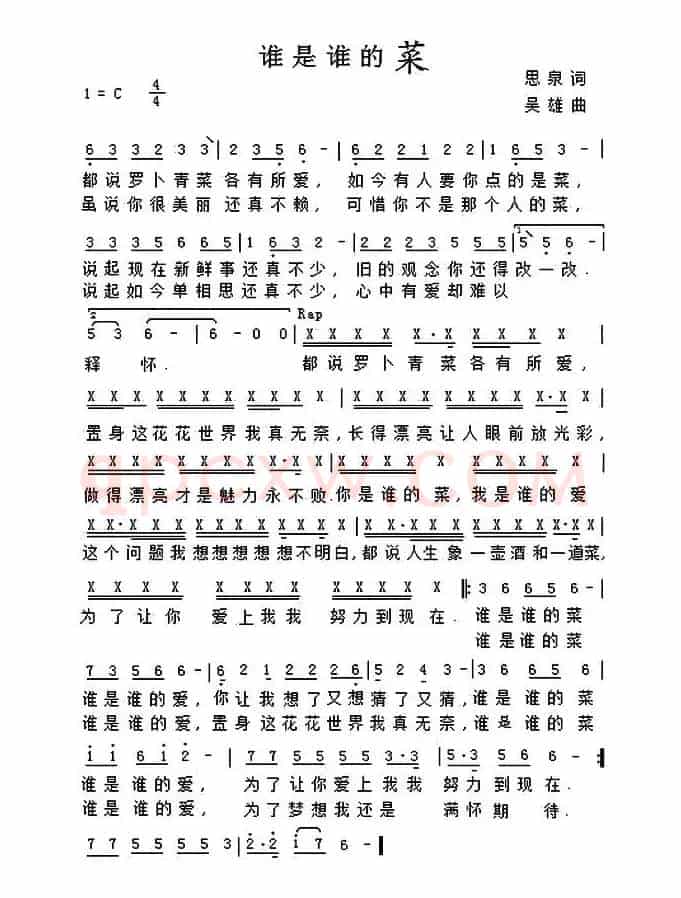 谁是谁的菜
1 = C 4/4
思泉词
吴雄曲
6 3 3 3 2 3 3 | 2 3 5 6 - | 6 2 2 1 2 2 | 1 6 5 5 - |
都说罗卜青菜各有所爱， 如今有人要你点的是菜，
虽说你很美丽还真不赖， 可惜你不是那个人的菜，
3 3 3 5 6 6 5 | 1 6 3 2 - | 2 2 2 3 5 5 5 | 5 5 6 - |
说起现在新鲜事还真不少， 旧的观念你还得改一改.
说起如今单相思还真不少， 心中有爱却难以
Rap
5 3 6 - | 6 - 0 0 | X X X X X·X X X X X |
释 怀. 都说罗卜青菜各有所爱，
置身这花花世界我真无奈，长得漂亮让人眼前放光彩，
做得漂亮才是魅力永不败.你是谁的菜，我是谁的爱
这个问题我想想想想想不明白，都说人生象一壶酒和一道菜，
X X X X X X X X X X X X X ‖: 3 6 6 5 6 - |
为了让你 爱上我我 努力到现在. 谁是谁的菜
谁是谁的菜
7 3 5 6 - | 6 2 1 2 2 2 6 | 5 2 4 3 - | 1 2 3 5 3 |
谁是谁的爱，你让我想了又想猜了又猜，谁是谁的菜
谁是谁的爱，置身这花花世界我真无奈，谁是谁的菜
1 1 6 1 2 - | 7 7 5 5 5 5 3·3 | 5·3 5 6 - :‖
谁是谁的爱， 为了让你爱上我我 努力到现在.
谁是谁的爱， 为了梦想我还是 满怀期待.
7 7 5 5 5 3 | 2·2 1 7 6 - ‖
qpcxw.COM